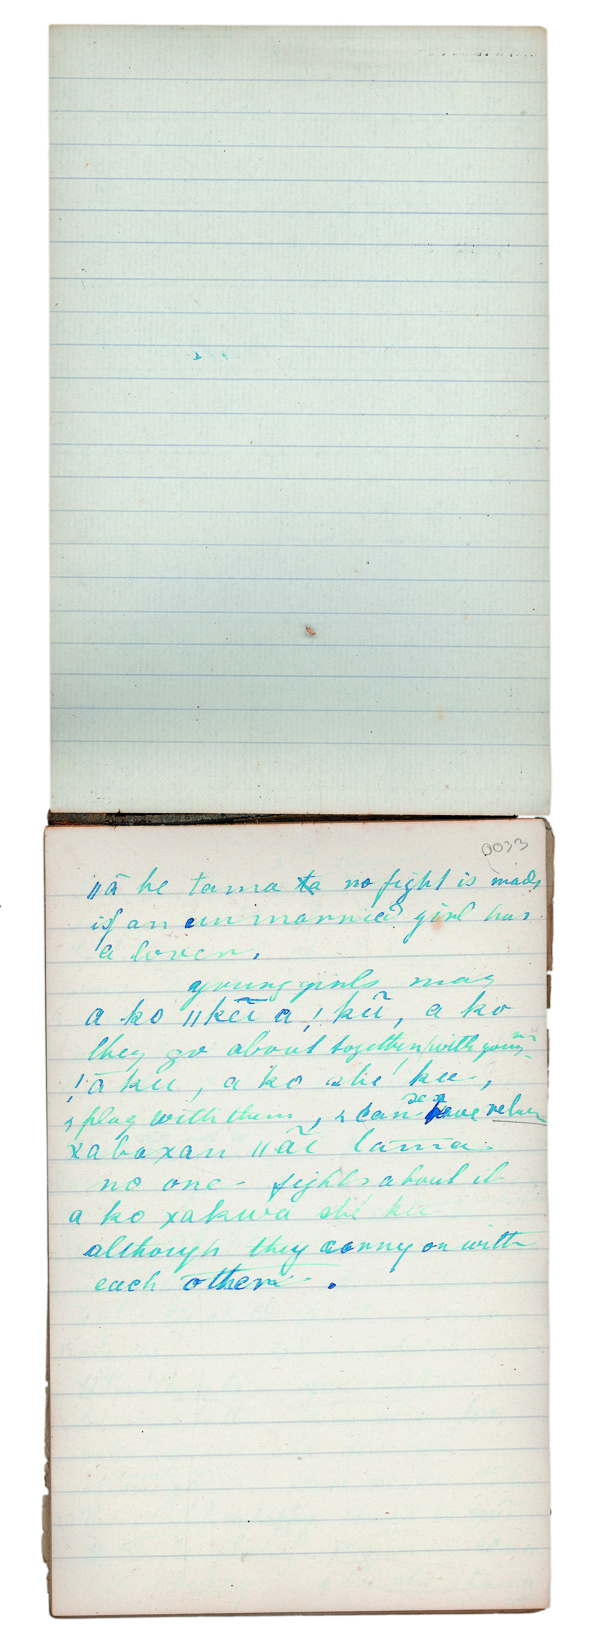 0033
ǁā he tama ta no fight is made
if an un married girl has
a lover.
young girls may
a ko ǁkẽĩ a ǃkũ, a ko
they go about together with young
ǃā kū, a ko kū,
& play with them, & can sex
xabaxan ǁãĩ tama.
no one fights about it
a ko xakwa
although they carry on with
each other.